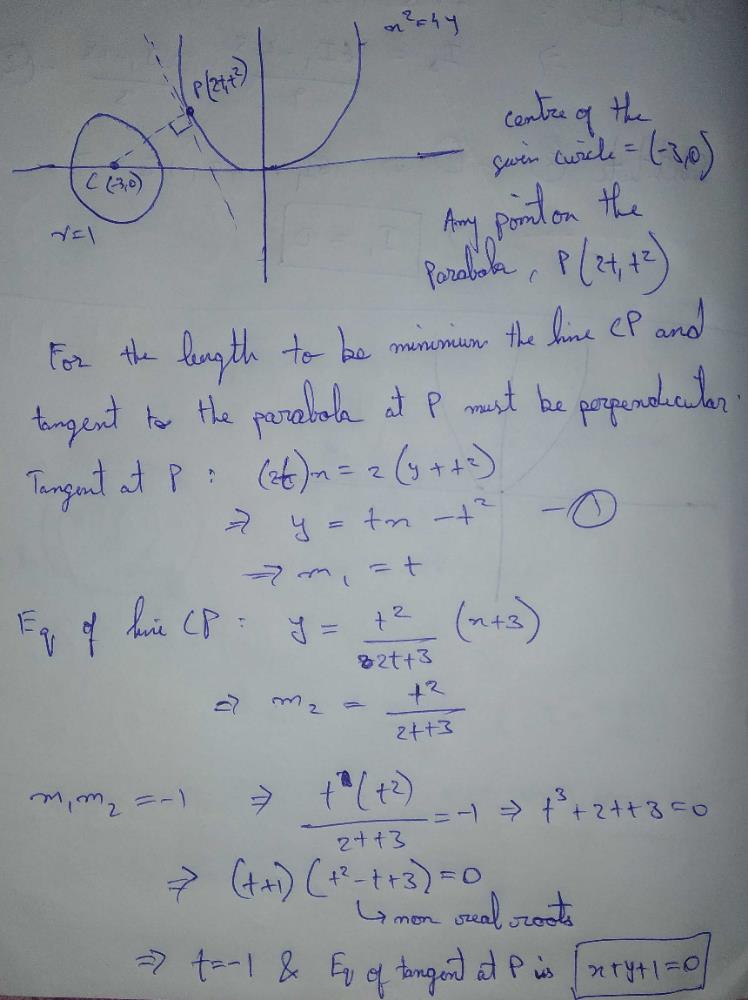 x²=4y
P(2t,t²)
C(-3,0)
r=1
centre of the
given circle = (-3,0)
Any point on the
Parabola, P(2t, t²)
For the length to be minimum the line CP and
tangent to the parabola at P must be perpendicular.
Tangent at P : (2t)x = 2(y+t²)
⇒ y = tx - t² - ①
⇒ m₁ = t
Eq of line CP : y = t²/(2t+3) (x+3)
⇒ m₂ = t²/(2t+3)
m₁m₂ = -1 ⇒ t(t²)/(2t+3) = -1 ⇒ t³+2t+3=0
⇒ (t+1)(t²-t+3)=0
↳ non real roots
⇒ t=-1 & Eq of tangent at P is x+y+1=0